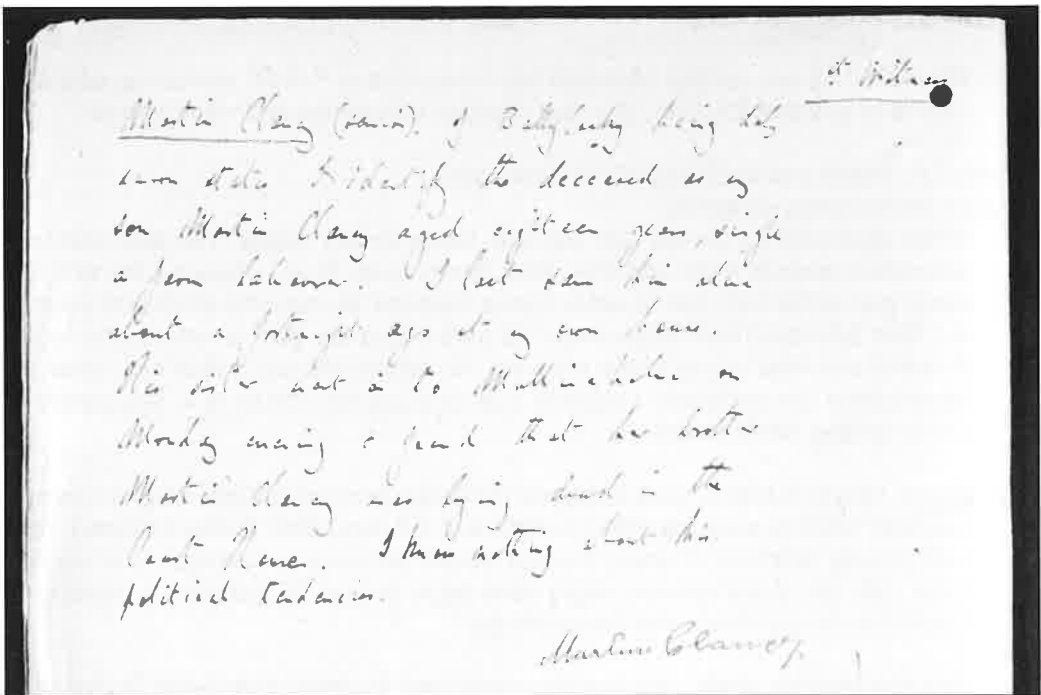 1st Witness
Martin Clancy (senior) of Ballylusky being duly
sworn states I identify the deceased as my
son Martin Clancy aged eighteen years, single
a farm labourer. I last saw him alive
about a fortnight ago at my own house.
His sister went in to Mullinahone on
Monday evening & found that her brother
Martin Clancy was lying dead in the
Court House. I know nothing about his
political tendencies.
Martin Clancy